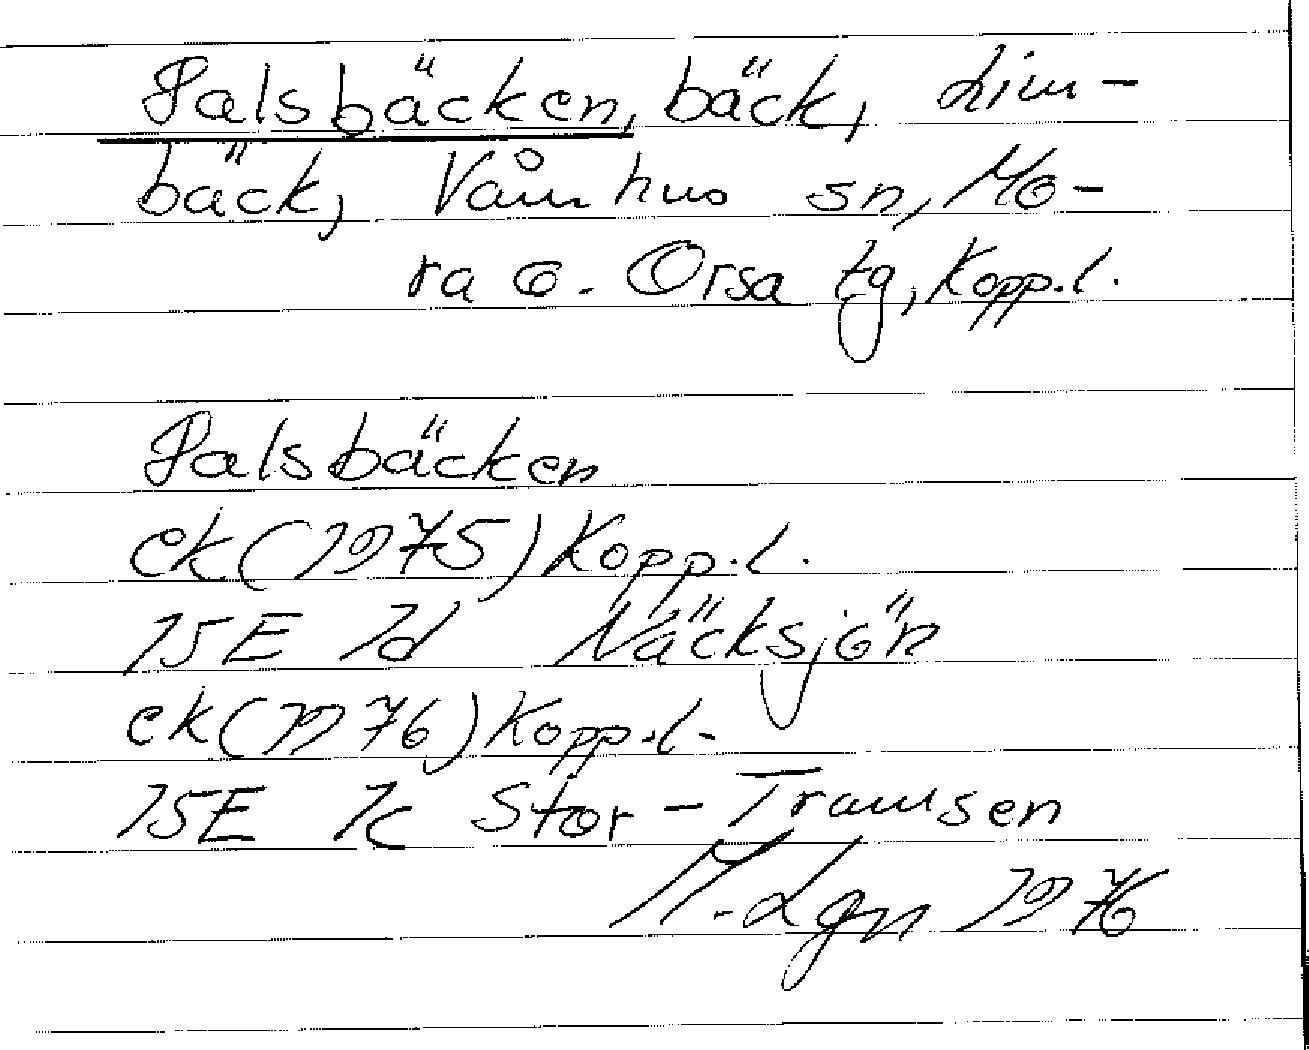 Palsbäcken, bäck, Lim-
bäck, Våmhus sn, Mo-
ra o. Orsa tg, Kopp.l.
Palsbäcken
ek(1975)Kopp.l.
15E 1d Näcksjön
ek(1976)Kopp.l.
15E 1c Stor-Tramsen
M.Lgn 1976